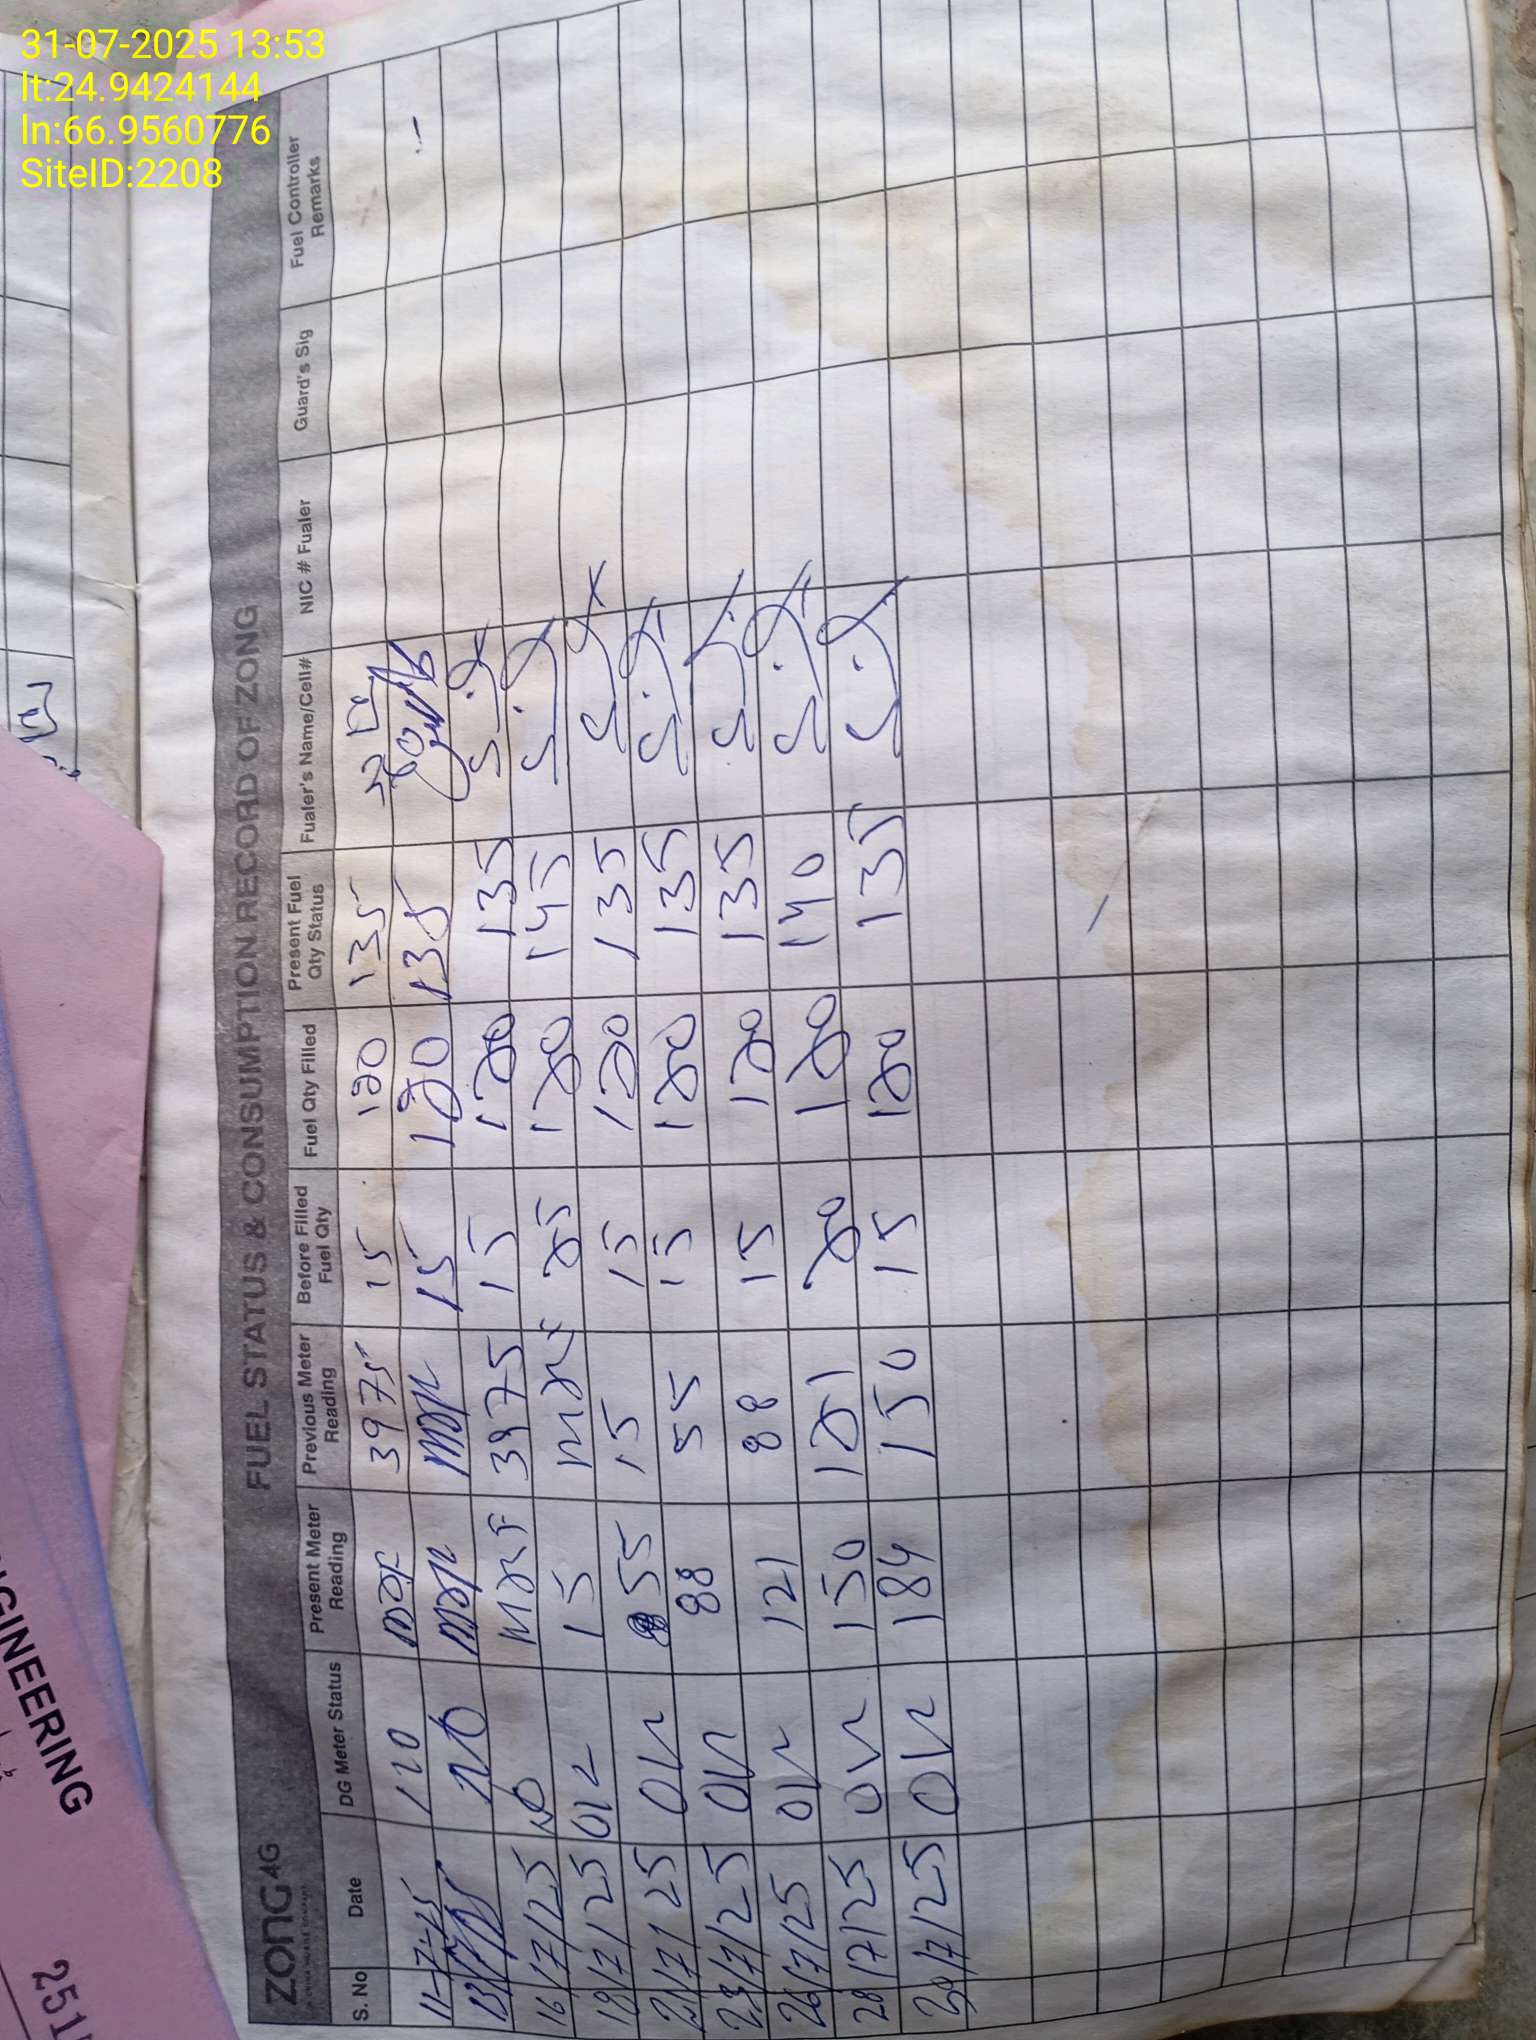 31-07-2025 13:53
lt:24.9424144
ln:66.9560776
SiteID:2208
GINEERING
251
ZONG 4G
FUEL STATUS & CONSUMPTION RECORD OF ZONG
S. No Date DG Meter Status Present Meter Reading Previous Meter Reading Before Filled Fuel Qty Fuel Qty Filled Present Fuel Qty Status Fualer's Name/Cell# NIC # Fualer Guard's Sig Fuel Controller Remarks
11-7-25 3975 15 120 135
NO 15 120 135
16/7/25 NO 3975 15 120 135
18/7/25 OK 15 25 120 145
21/7/25 OK 55 15 15 120 135
23/7/25 OK 88 55 15 120 135
26/7/25 OK 121 88 15 120 135
28/7/25 OK 150 121 20 120 140
30/7/25 OK 184 150 15 120 135